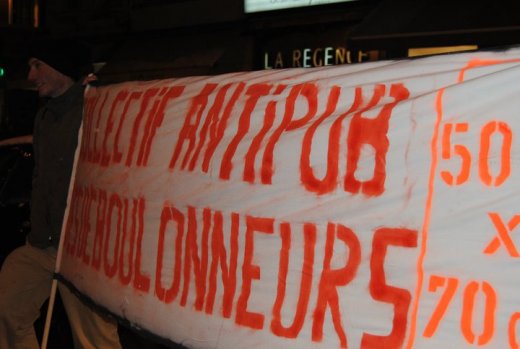 LA REGENCE
COLLECTIF ANTIPUB
LES DEBOULONNEURS
50
x
70